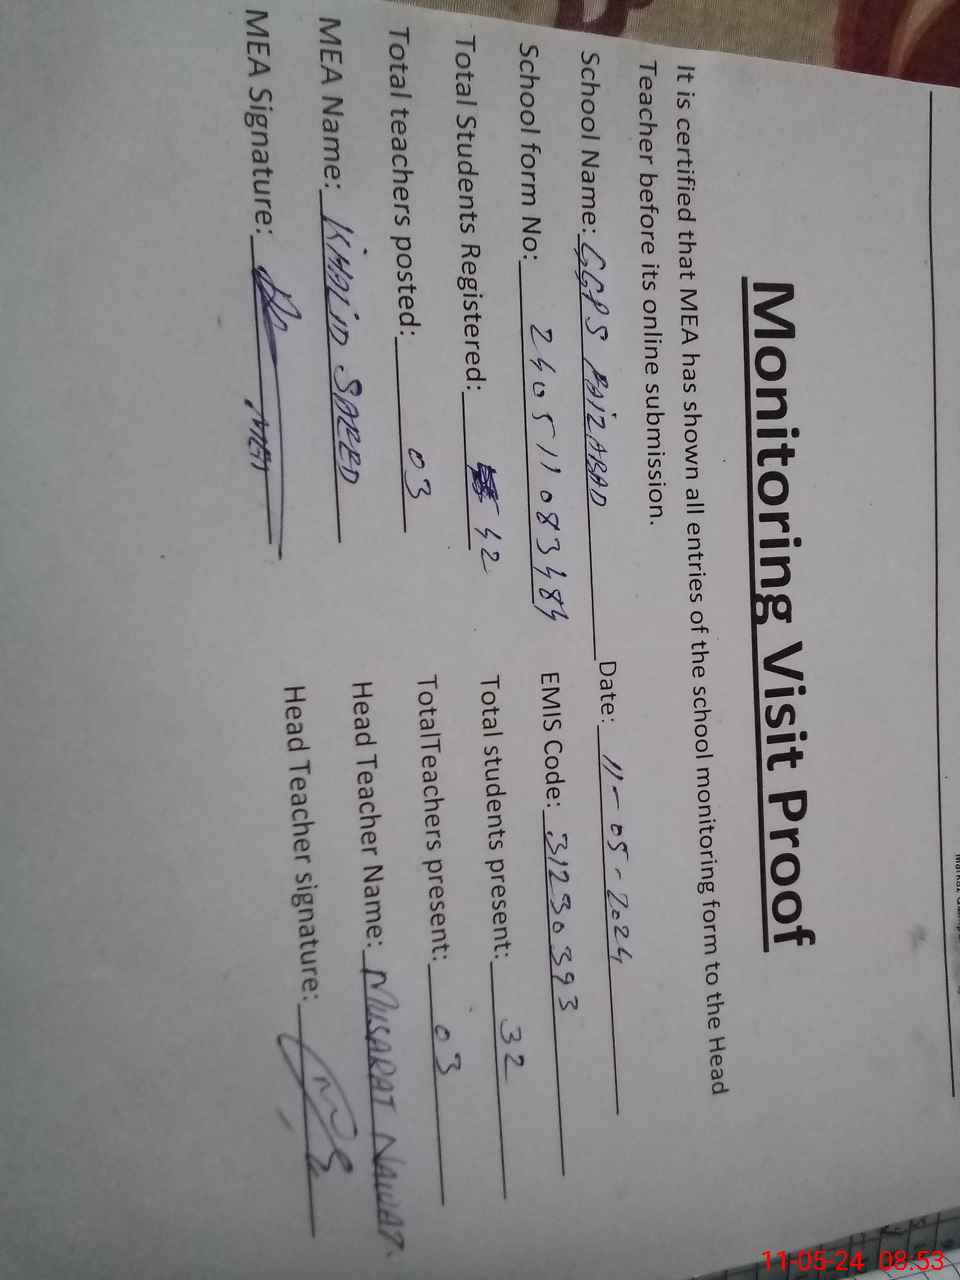 Monitoring Visit Proof
It is certified that MEA has shown all entries of the school monitoring form to the Head
Teacher before its online submission.
School Name: GGPS FAIZABAD Date: 11-05-2024
School form No: 240511083484 EMIS Code: 31230393
Total Students Registered: 42 Total students present: 32
Total teachers posted: 03 TotalTeachers present: 03
MEA Name: KHALID SAEED Head Teacher Name: MUSARAT NAWAZ
MEA Signature: MEA Head Teacher signature:
11-05-24 08:53